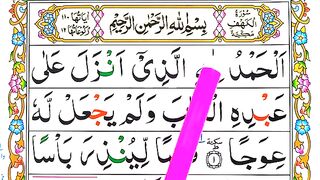 سُوْرَةُ الْكَهْف مَكِّيَّةٌ
بِسْمِ اللهِ الرَّحْمٰنِ الرَّحِيْمِ
اٰيَاتُهَا ١١٠
رُكُوْعَاتُهَا ١٢
اَلْحَمْدُ الَّذِىْۤ اَنْزَلَ عَلٰى
عَبْدِهِ وَلَمْ يَجْعَلْ لَّهٗ
عِوَجًا ١ لِّيُنْذِرَ بَاْسًا